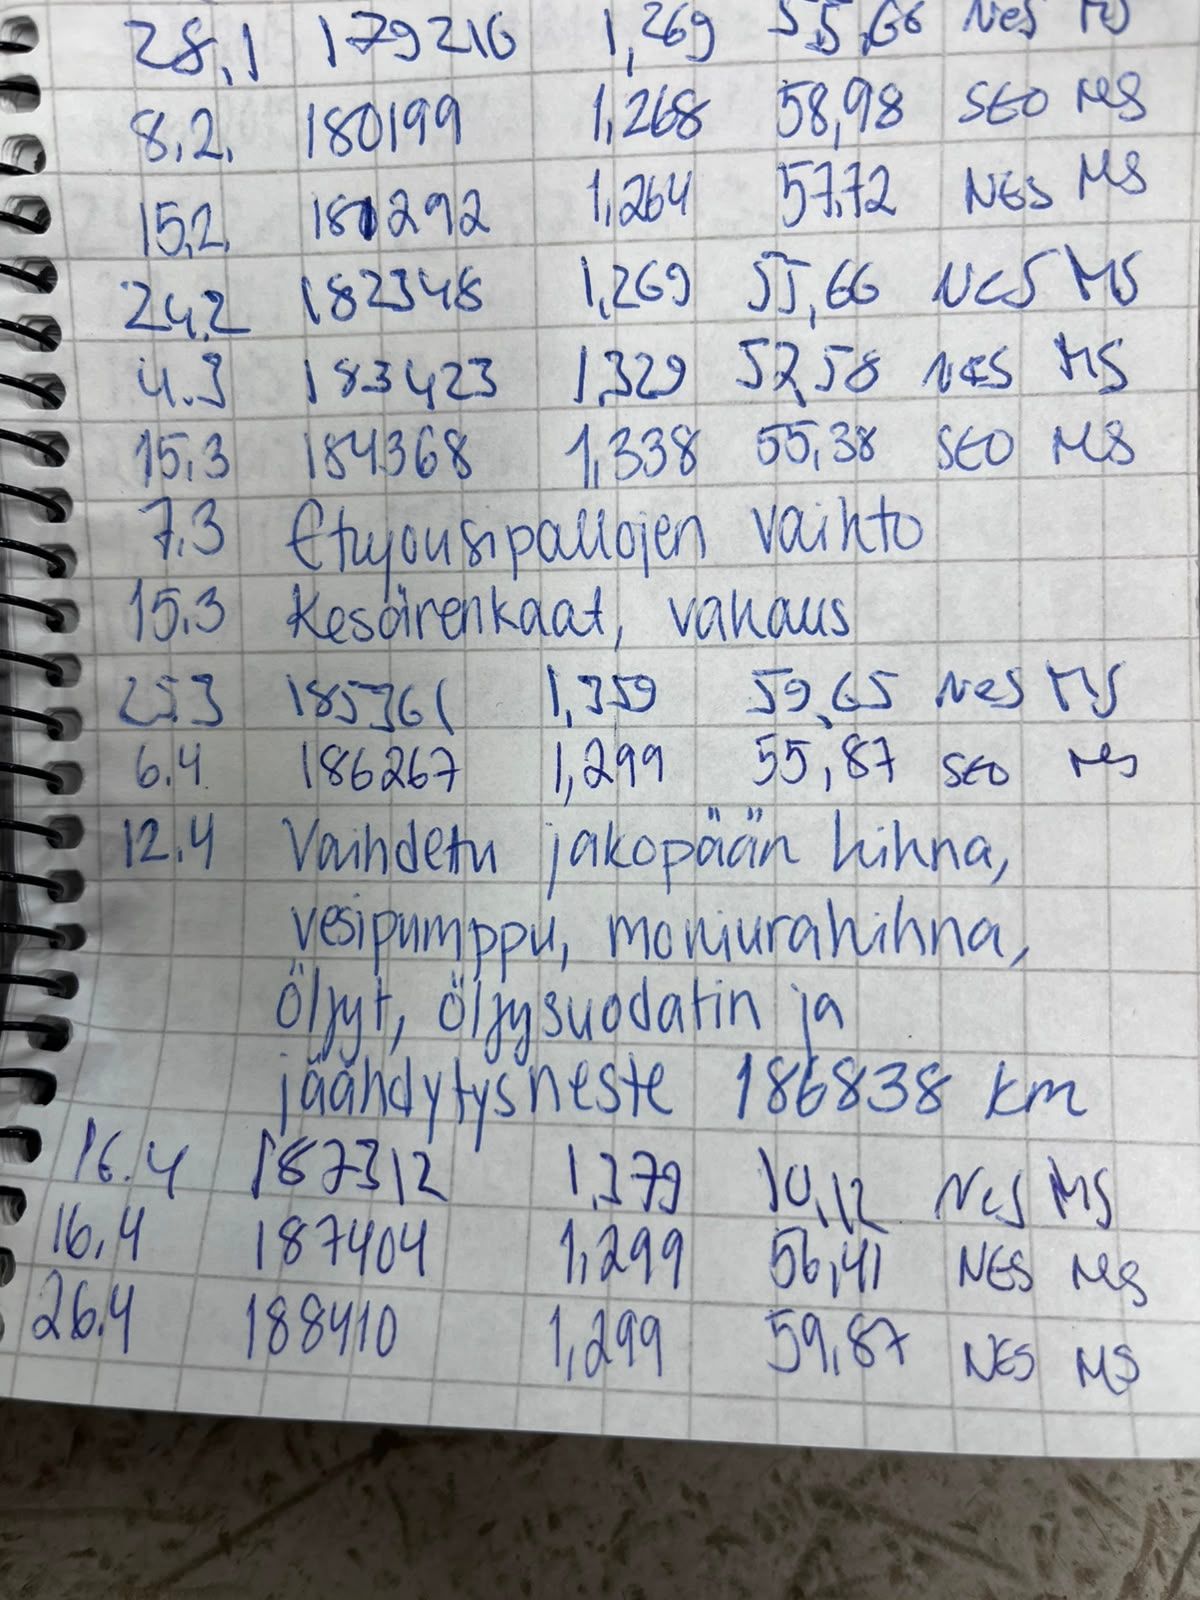 28.1 179216 1,269 55,66 NES MS
8.2. 180199 1,268 58,98 SEO MS
15.2. 181292 1,264 57,72 NES MS
24.2 182348 1,269 55,66 NES MS
4.3 183423 1,329 52,58 NES MS
15.3 184368 1,338 55,38 SEO MS
7.3 Etujousipallojen vaihto
15.3 Kesärenkaat, vahaus
25.3 185361 1,359 59,65 NES MS
6.4 186267 1,299 55,87 SEO MS
12.4 Vaihdettu jakopään hihna,
vesipumppu, moniurahihna,
Öljyt, öljysuodatin ja
jäähdytysneste 186838 km
16.4 187312 1,379 10,12 NES MS
16.4 187404 1,299 56,41 NES MS
26.4 188410 1,299 59,87 NES MS